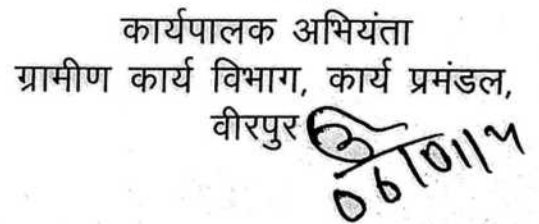 कार्यपालक अभियंता
ग्रामीण कार्य विभाग, कार्य प्रमंडल,
वीरपुर